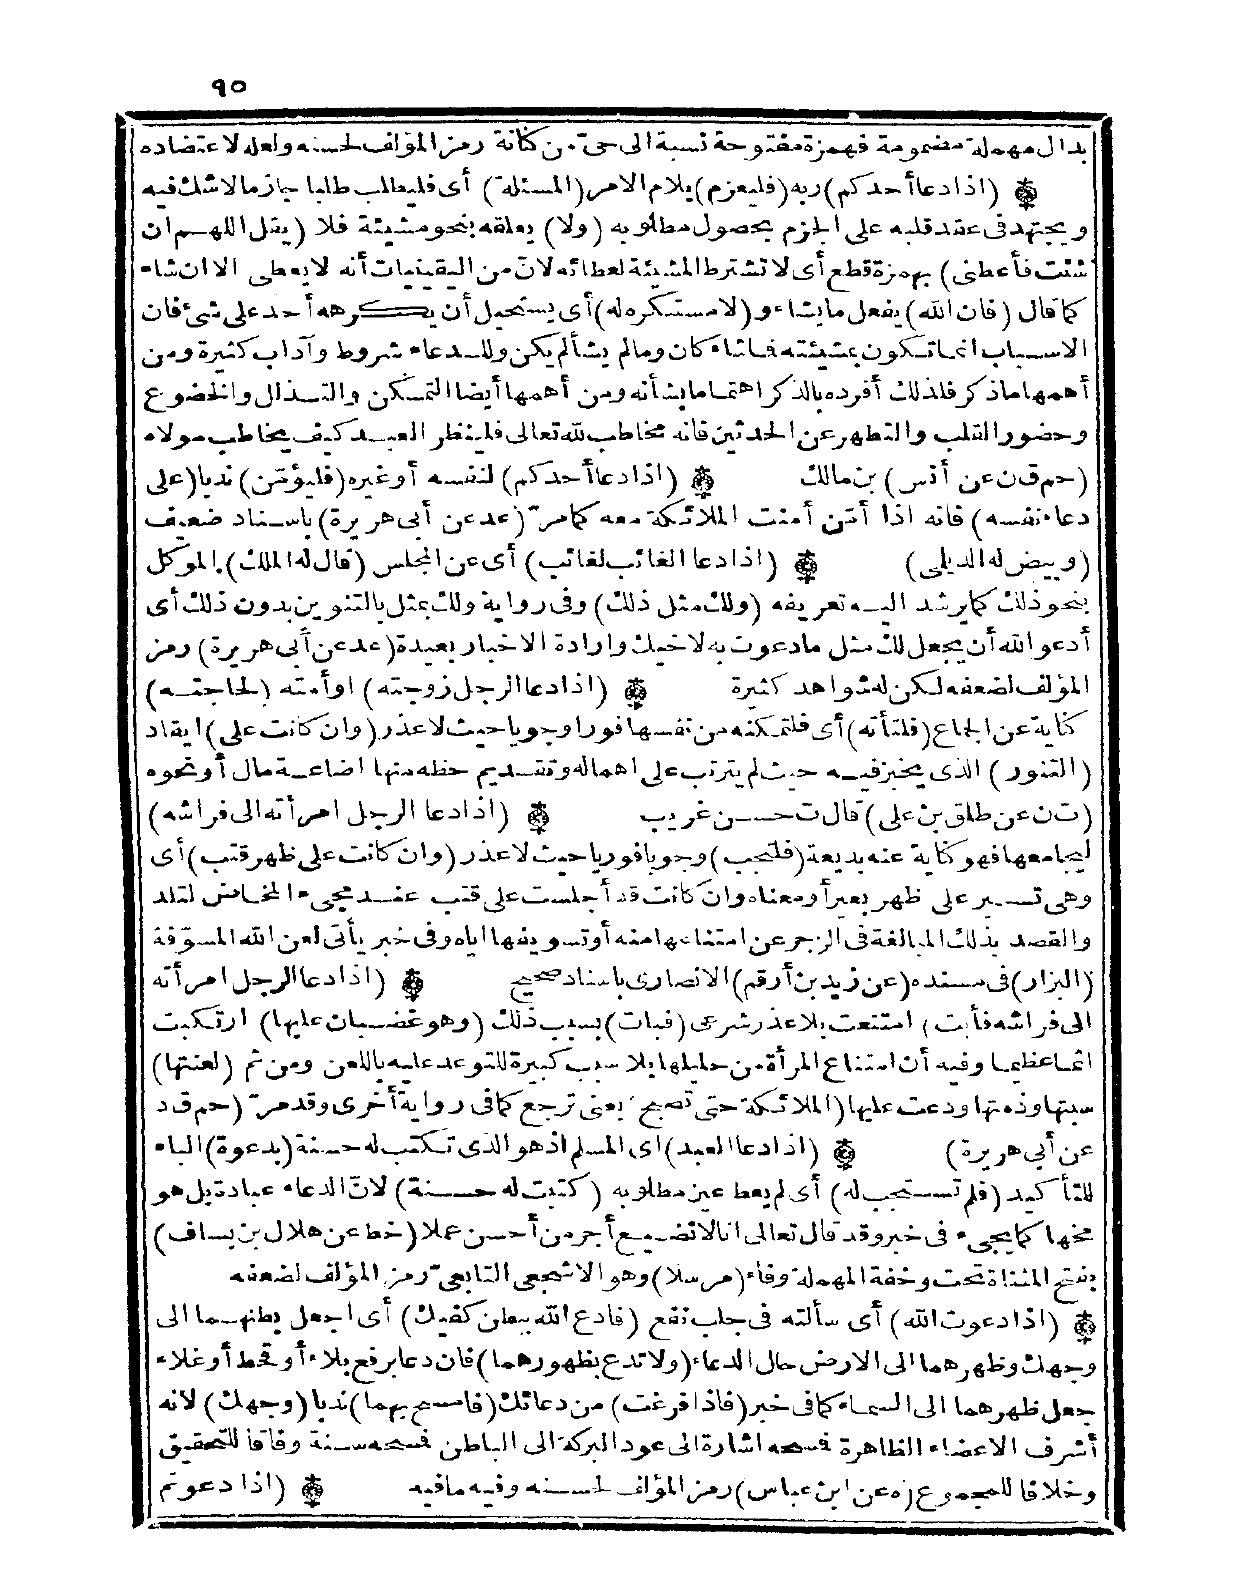 ٩٥
بدال مهملة مضمومة فهمزة مفتوحة نسبة الى حى من كنانة رمز المؤلف لحسنه ولعله لاعتضاده
(اذا دعا أحدكم) ربه (فليعزم) بلام الامر (المسئلة) أى فليطلب طلبا جازما لا شك فيه
ويجتهد فى عقد قلبه على الجزم بحصول مطلوبه (ولا) يعلقه بنحو مشيئة فلا (يقل اللهم ان
شئت فأعطنى) بهمزة قطع أى لا تشترط المشيئة لعطائه لانّ من اليقينيات أنه لا يعطى الا ان شاء
كما قال (فان الله) يفعل ما يشاء و(لا مستكره له) أى يستحيل أن يكرهه أحد على شئ فان
الاسباب انما تكون بمشيئته فما شاء كان وما لم يشأ لم يكن وللدعاء شروط وآداب كثيرة ومن
أهمها ما ذكر فلذلك أفرده بالذكر اهتماما بشأنه ومن أهمها أيضا التمسكن والتذلل والخضوع
وحضور القلب والتطهر عن الحدثين فانه مخاطب لله تعالى فلينظر العبد كيف يخاطب مولاه
(حم ق ن عن أنس) بن مالك (اذا دعا أحدكم) لنفسه أو غيره (فليؤمّن) ندبا (على
دعاء نفسه) فانه اذا أمّن أمنت الملائكة معه كما مرّ (عد عن أبى هريرة) باسناد ضعيف
(وبيض له الديلمى) (اذا دعا الغائب لغائب) أى عن المجلس (قال له الملك) الموكل
بنحو ذلك كما يرشد اليه تعريفه (ولك مثل ذلك) وفى رواية ولك بمثل بالتنوين بدون ذلك أى
أدعو الله أن يجعل لك مثل ما دعوت به لاخيك وارادة الاخبار بعيدة (عد عن أبى هريرة) رمز
المؤلف لضعفه لكن له شواهد كثيرة (اذا دعا الرجل زوجته) او أمته (لحاجته)
كناية عن الجماع (فلتأته) أى فلتمكنه من نفسها فورا وجوبا حيث لا عذر (وان كانت على) ايقاد
(التنور) الذى يخبز فيه حيث لم يترتب على اهماله وتقديم حظه منها اضاعة مال أو نحوه
(ت ن عن طلق بن على) قال ت حسن غريب (اذا دعا الرجل امرأته الى فراشه)
ليجامعها فهو كناية عنه بديعة (فلتجب) وجوبا فوريا حيث لا عذر (وان كانت على ظهر قتب) أى
وهى تسير على ظهر بعير أو معناه وان كانت قد أجلست على قتب عند مجىء المخاض لتلد
والقصد بذلك المبالغة فى الزجر عن امتناعها منه أو تسويفها اياه وفى خبر يأتى لعن الله المسوّفة
(البزار) فى مسنده (عن زيد بن أرقم) الانصارى باسناد صحيح (اذا دعا الرجل امرأته
الى فراشه فأبت) امتنعت بلا عذر شرعى (فبات) بسبب ذلك (وهو غضبان عليها) ارتكبت
اثما عظيما وفيه أن امتناع المرأة من حليلها بلا سبب كبيرة للتوعد عليه باللعن ومن ثم (لعنتها)
سبتها وذمتها ودعت عليها (الملائكة حتى تصبح) يعنى ترجع كما فى رواية أخرى وقد مرّ (حم ق د
عن أبى هريرة) (اذا دعا العبد) اى المسلم اذ هو الذى تكتب له حسنة (بدعوة) الباء
للتأكيد (فلم تستجب له) أى لم يعط عين مطلوبه (كتبت له حسنة) لانّ الدعاء عبادة بل هو
مخها كما يجىء فى خبر وقد قال تعالى انا لا نضيع أجر من أحسن عملا (خط عن هلال بن يساف)
بفتح المثناة تحت وخفة المهملة وفاء (مرسلا) وهو الاشجعى التابعىّ رمز المؤلف لضعفه
(اذا دعوت الله) أى سألته فى جلب نفع (فادع الله ببطن كفيك) أى اجعل بطنهما الى
وجهك وظهرهما الى الارض حال الدعاء (ولا تدع بظهورهما) فان دعا برفع بلاء أو قحط أو غلاء
جعل ظهرهما الى السماء كما فى خبر (فاذا فرغت) من دعائك (فامسح بهما) ندبا (وجهك) لانه
أشرف الاعضاء الظاهرة فمسحه اشارة الى عود البركة الى الباطن فمسحه سنة وفاقا للتحقيق
وخلافا للمجموع (ه عن ابن عباس) رمز المؤلف لحسنه وفيه ما فيه (اذا دعوتم